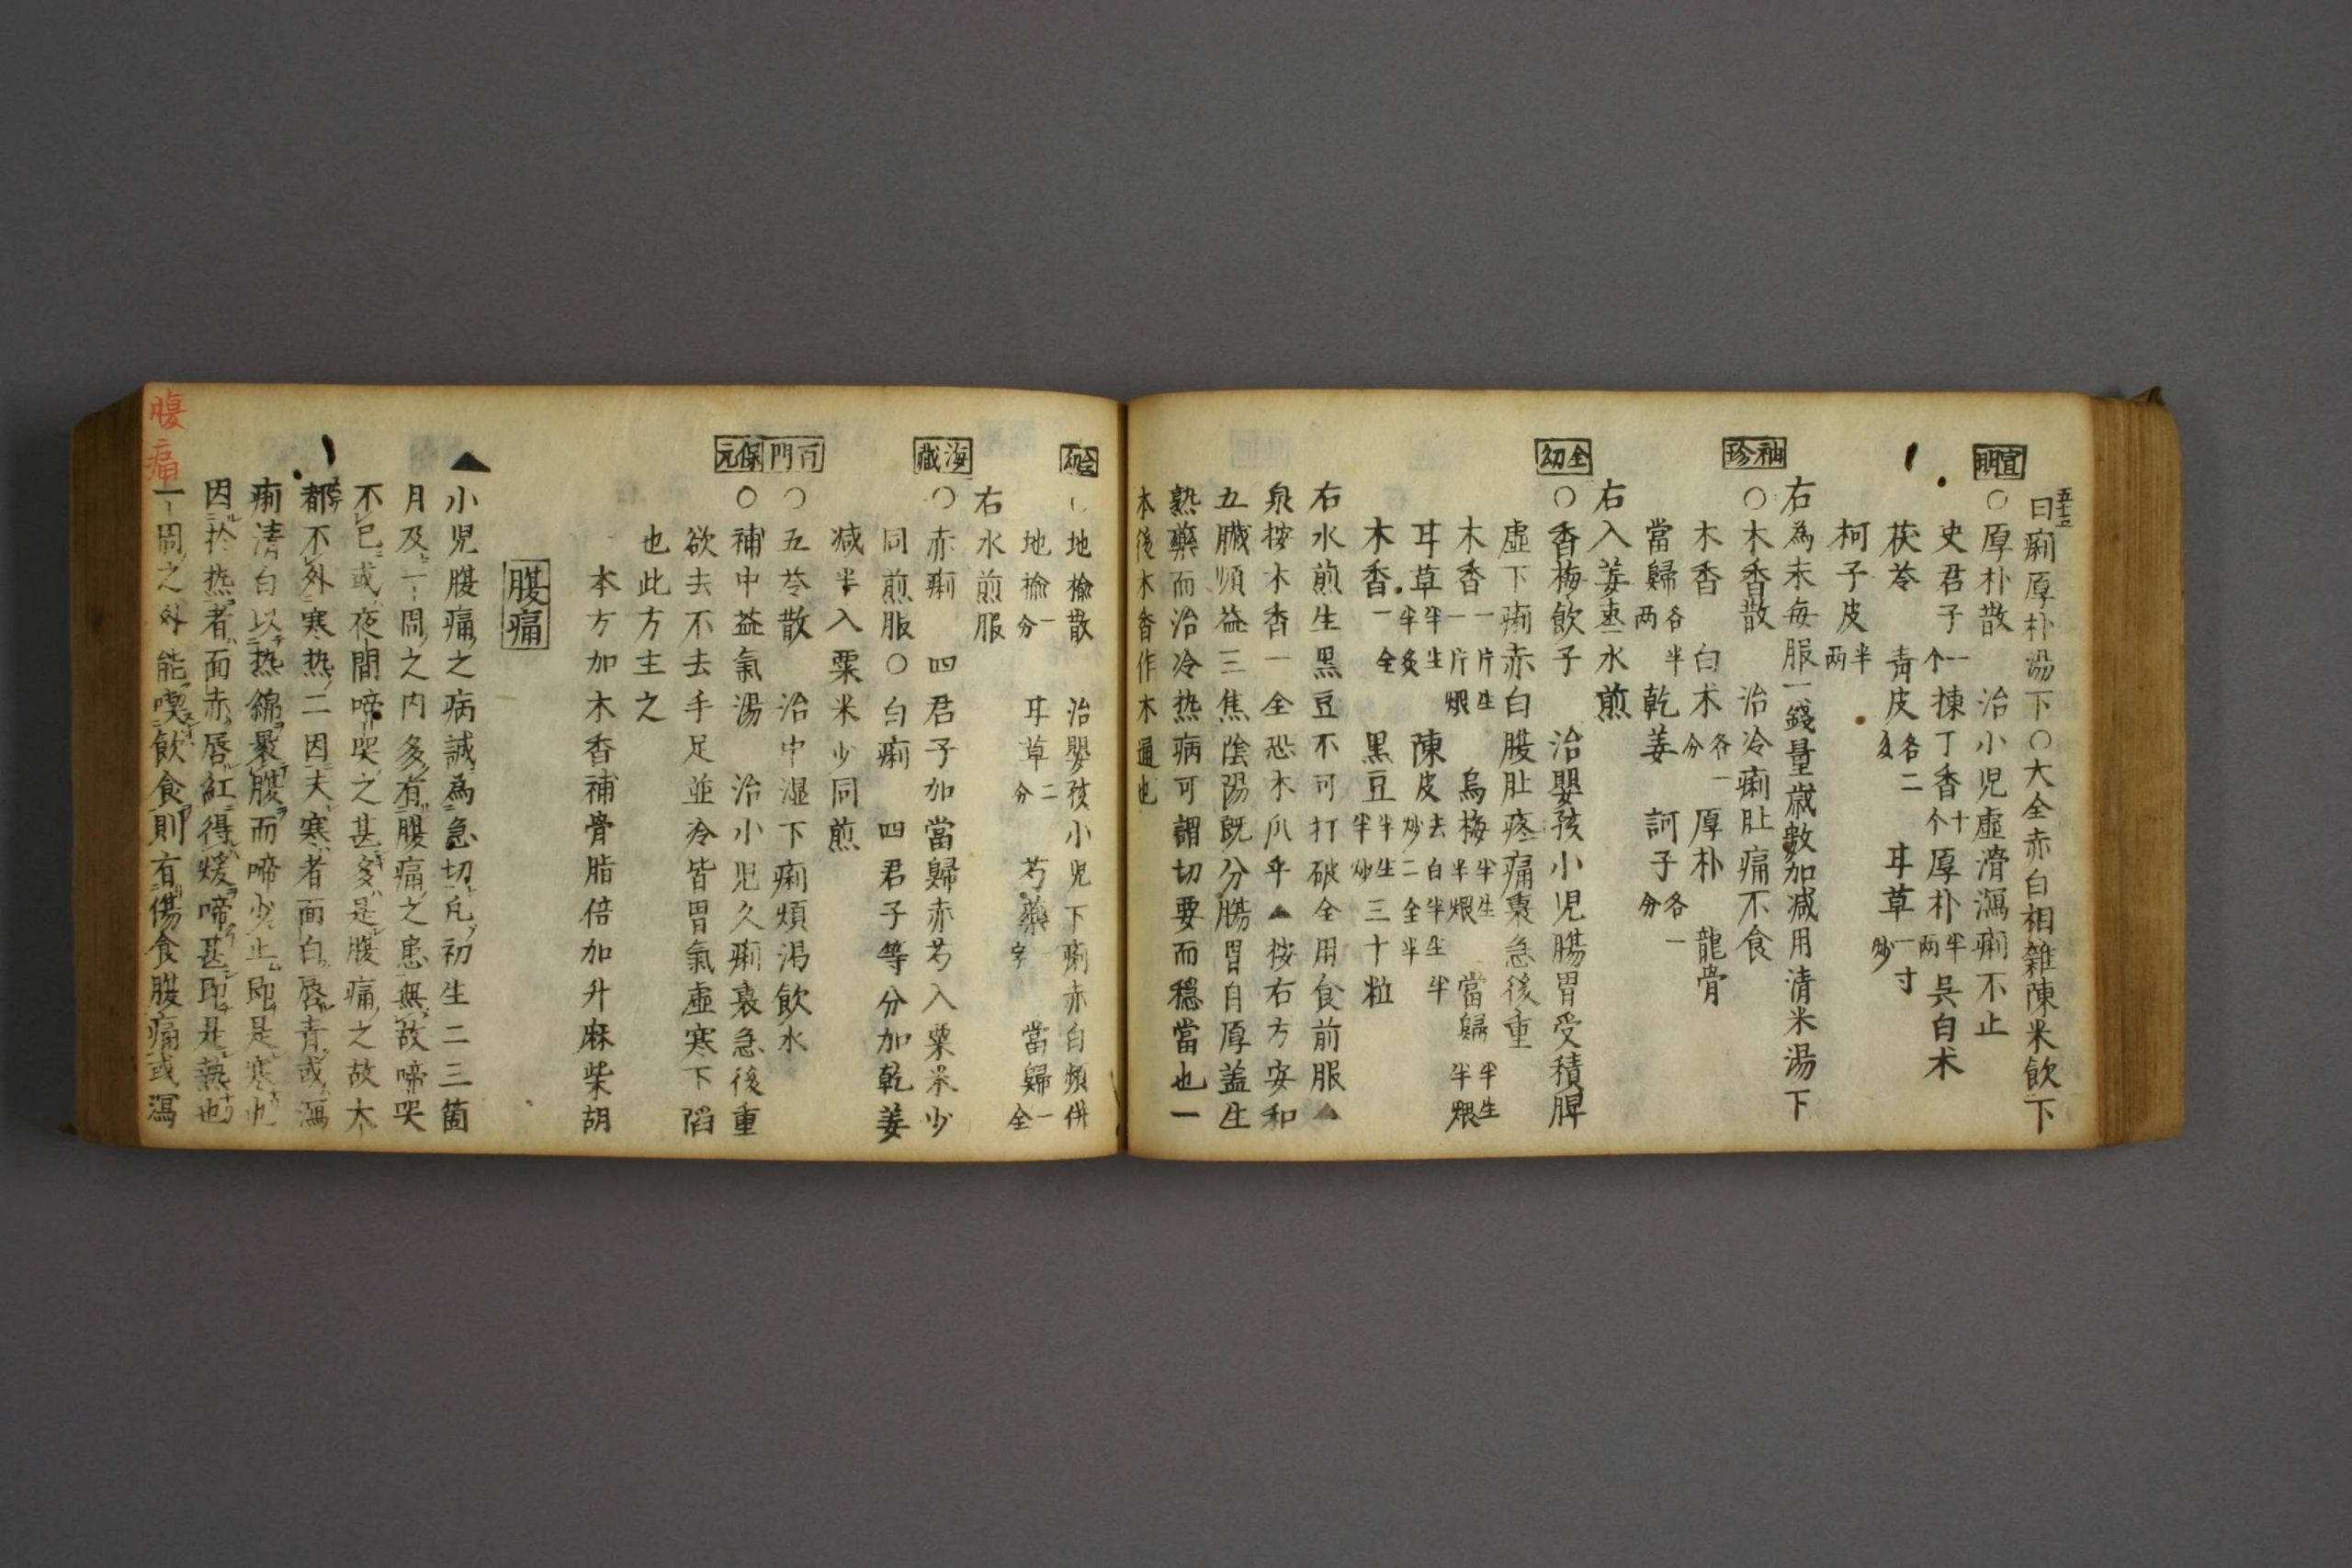 宣明
袖珍
全幼
五十五
曰痢厚朴湯下○大全赤白相雜陳米飲下
○厚朴散 治小児虛滑瀉痢不止
史君子一个 揀丁香十个 厚朴半两 吴白术
茯苓 青皮各二 耳草一寸炒
柯子皮半两
右為末每服一錢量歳數加减用清米湯下
○木香散 治冷痢肚痛不食
木香 白术各一分 厚朴 龍骨
當歸各半两 乾姜 訶子各一分
右入姜棗水煎
○香梅飲子 治嬰孩小児腸胃受積脾
虛下痢赤白腹肚疼痛裏急後重
木香一片生一片煨 烏梅半生半煨 當歸半生半煨
耳草半生半炙 陳皮去白半生半炒二全半
木香一全 黒豆半生半炒三十粒
右水煎生黒豆不可打破全用食前服▲
泉按木香一全恐木瓜乎▲按右方安和
五臓順益三焦陰陽既分腸胃自厚盖生
熟藥而治冷热病可謂切要而穏當也一
本後木香作木通也
全幼
海藏
百門
保元
○地榆散 治嬰孩小児下痢赤白頻併
地榆一分 耳草二分 芍藥一字 當歸一全
右水煎服
○赤痢 四君子加當歸赤芍入粟米少
同煎服○白痢 四君子等分加乾姜
减半入粟米少同煎
○五苓散 治中湿下痢煩渴飲水
○補中益氣湯 治小児久痢裏急後重
欲去不去手足並冷皆胃氣虛寒下陷
也此方主之
本方加木香補骨脂倍加升麻柴胡
腹痛
▲小児腹痛之病誠為急切凢初生二三箇
月及一周之内多有腹痛之患無故啼哭
不已或夜間啼哭之甚多是腹痛之故大
都不外寒热二因夫寒者面白唇青或瀉
痢清白以热錦裹腹而啼少止即是寒也
因扵热者面赤唇紅得煖啼甚即是熱也
一周之外能喫飲食則有傷食腹痛或瀉
腹痛